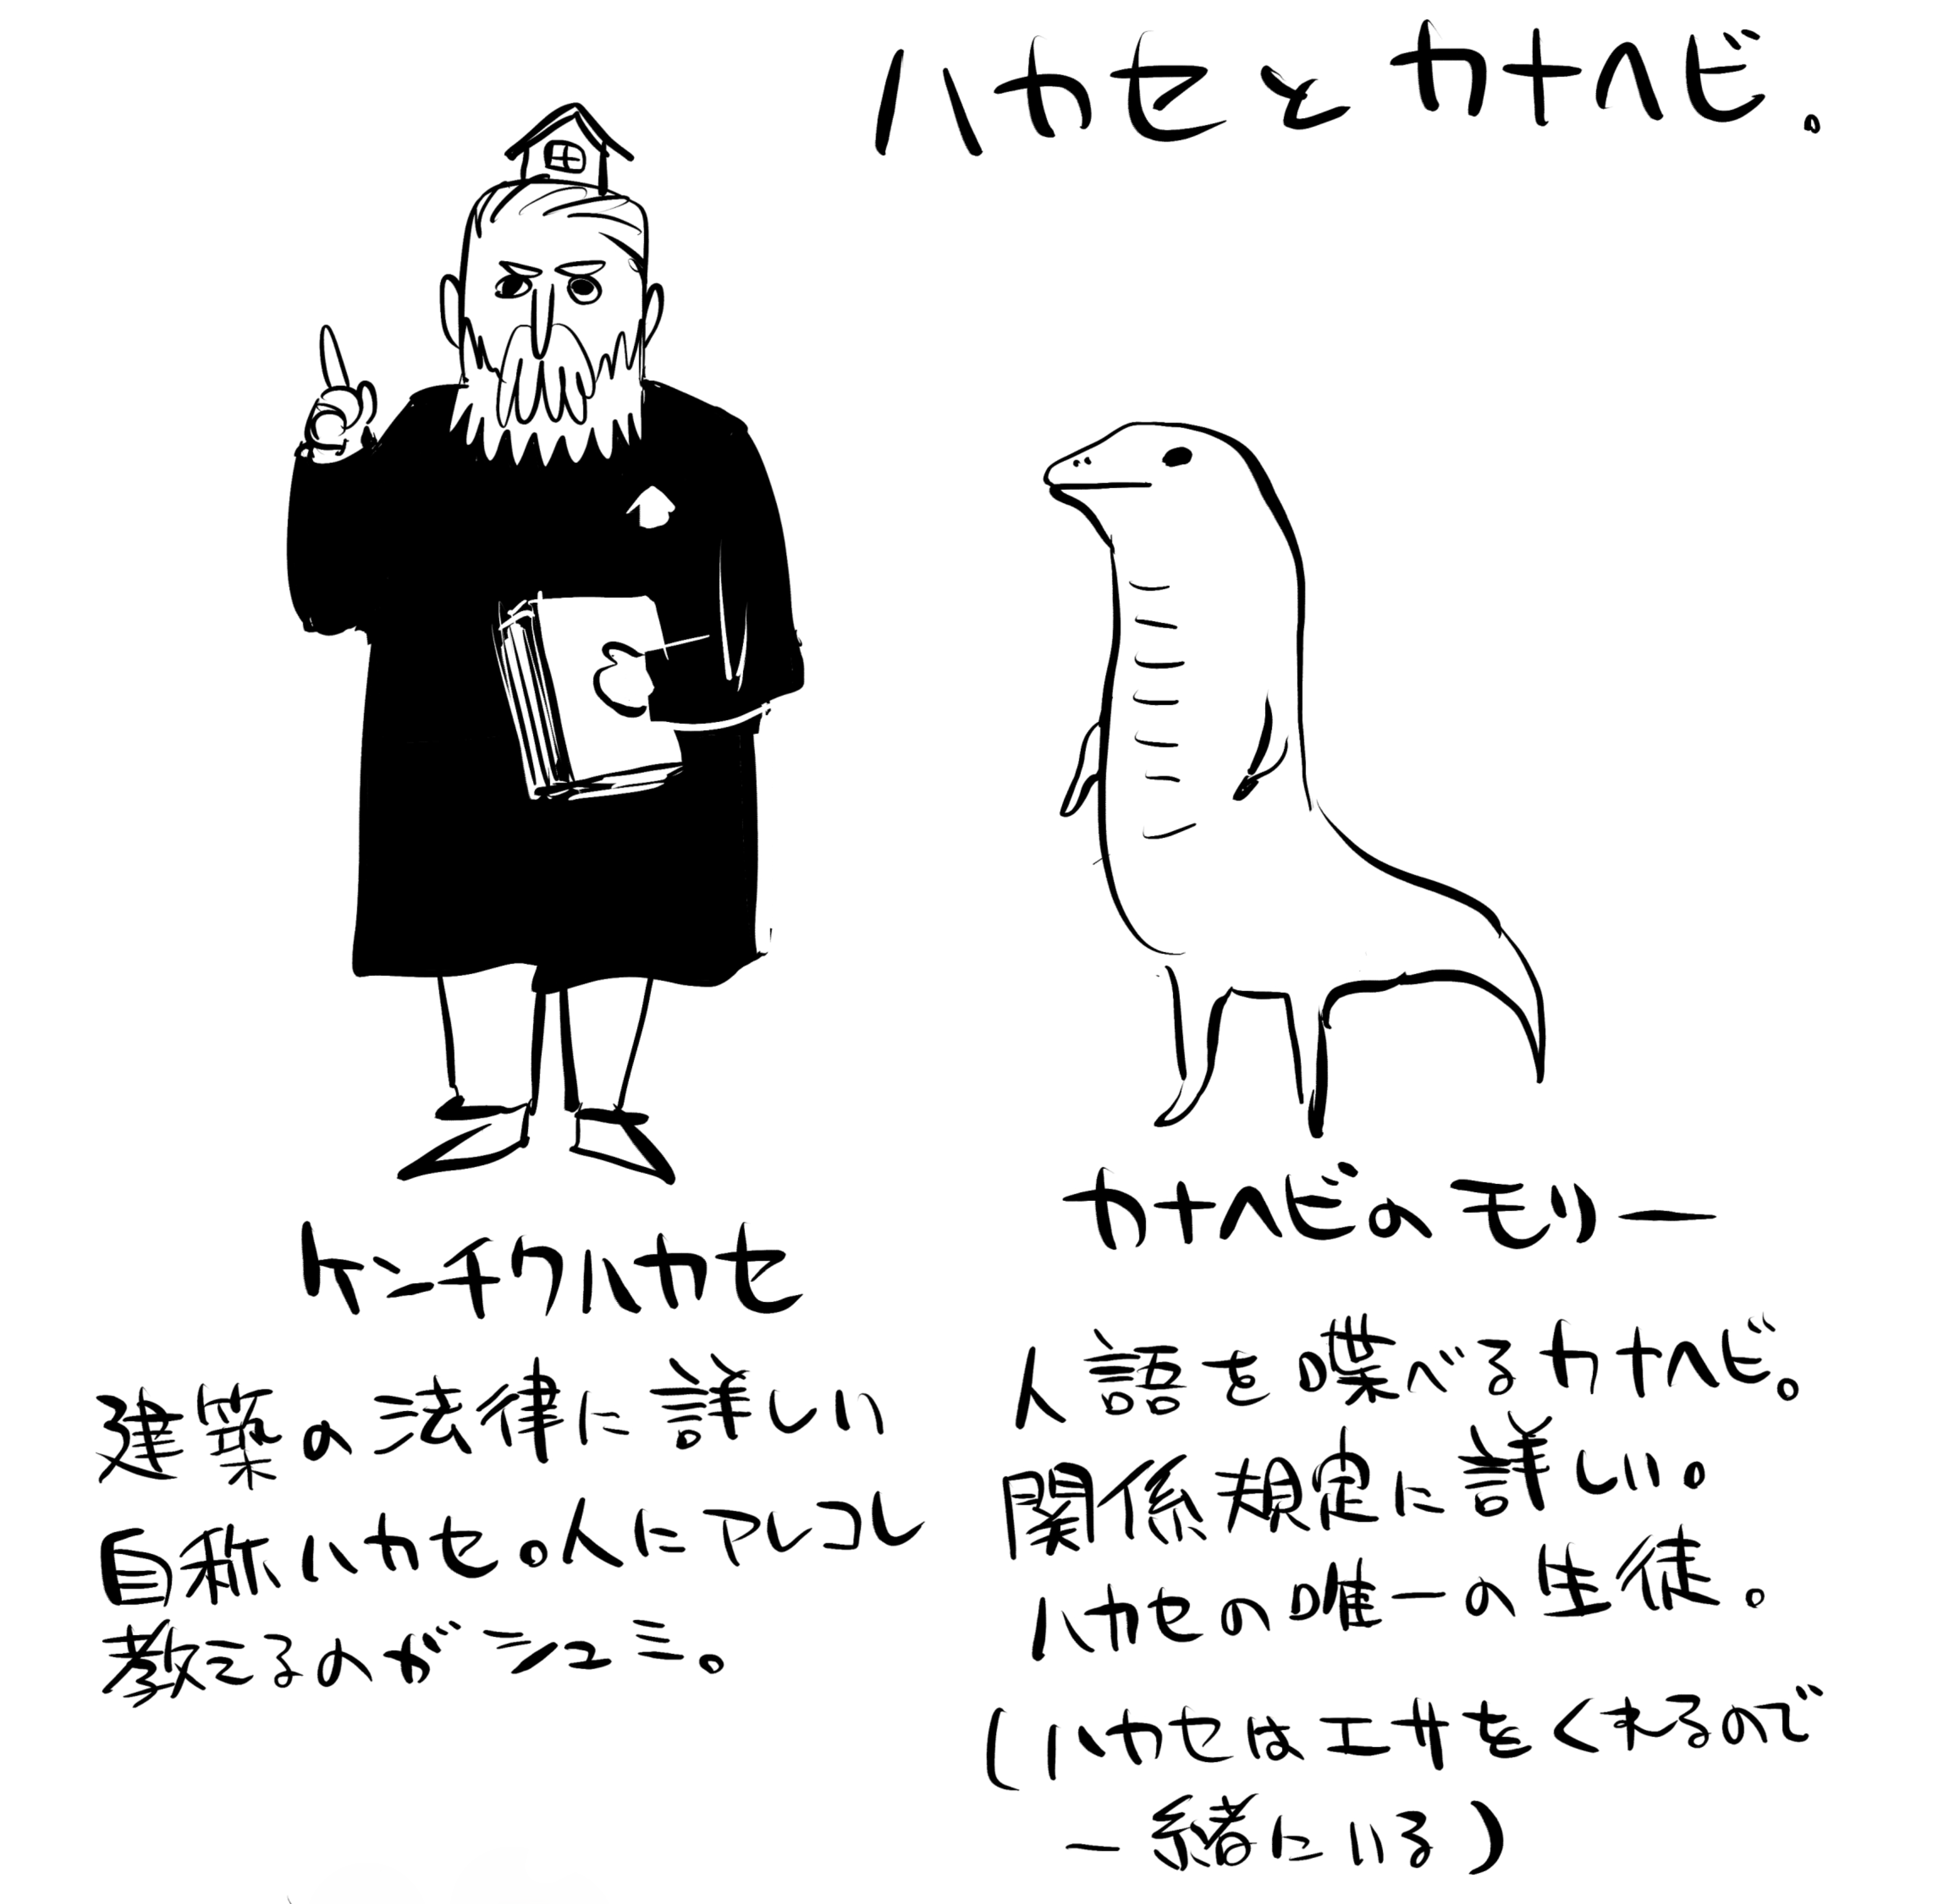 ハカセとカナヘビ。
ケンチクハカセ
建築の法律に詳しい
自称ハカセ。人にアレコレ
教えるのがシュミ。
カナヘビのモリー
人語を喋べるカナヘビ。
関係規定に詳しい。
ハカセの唯一の生徒。
(ハカセはエサをくれるので
一緒にいる)